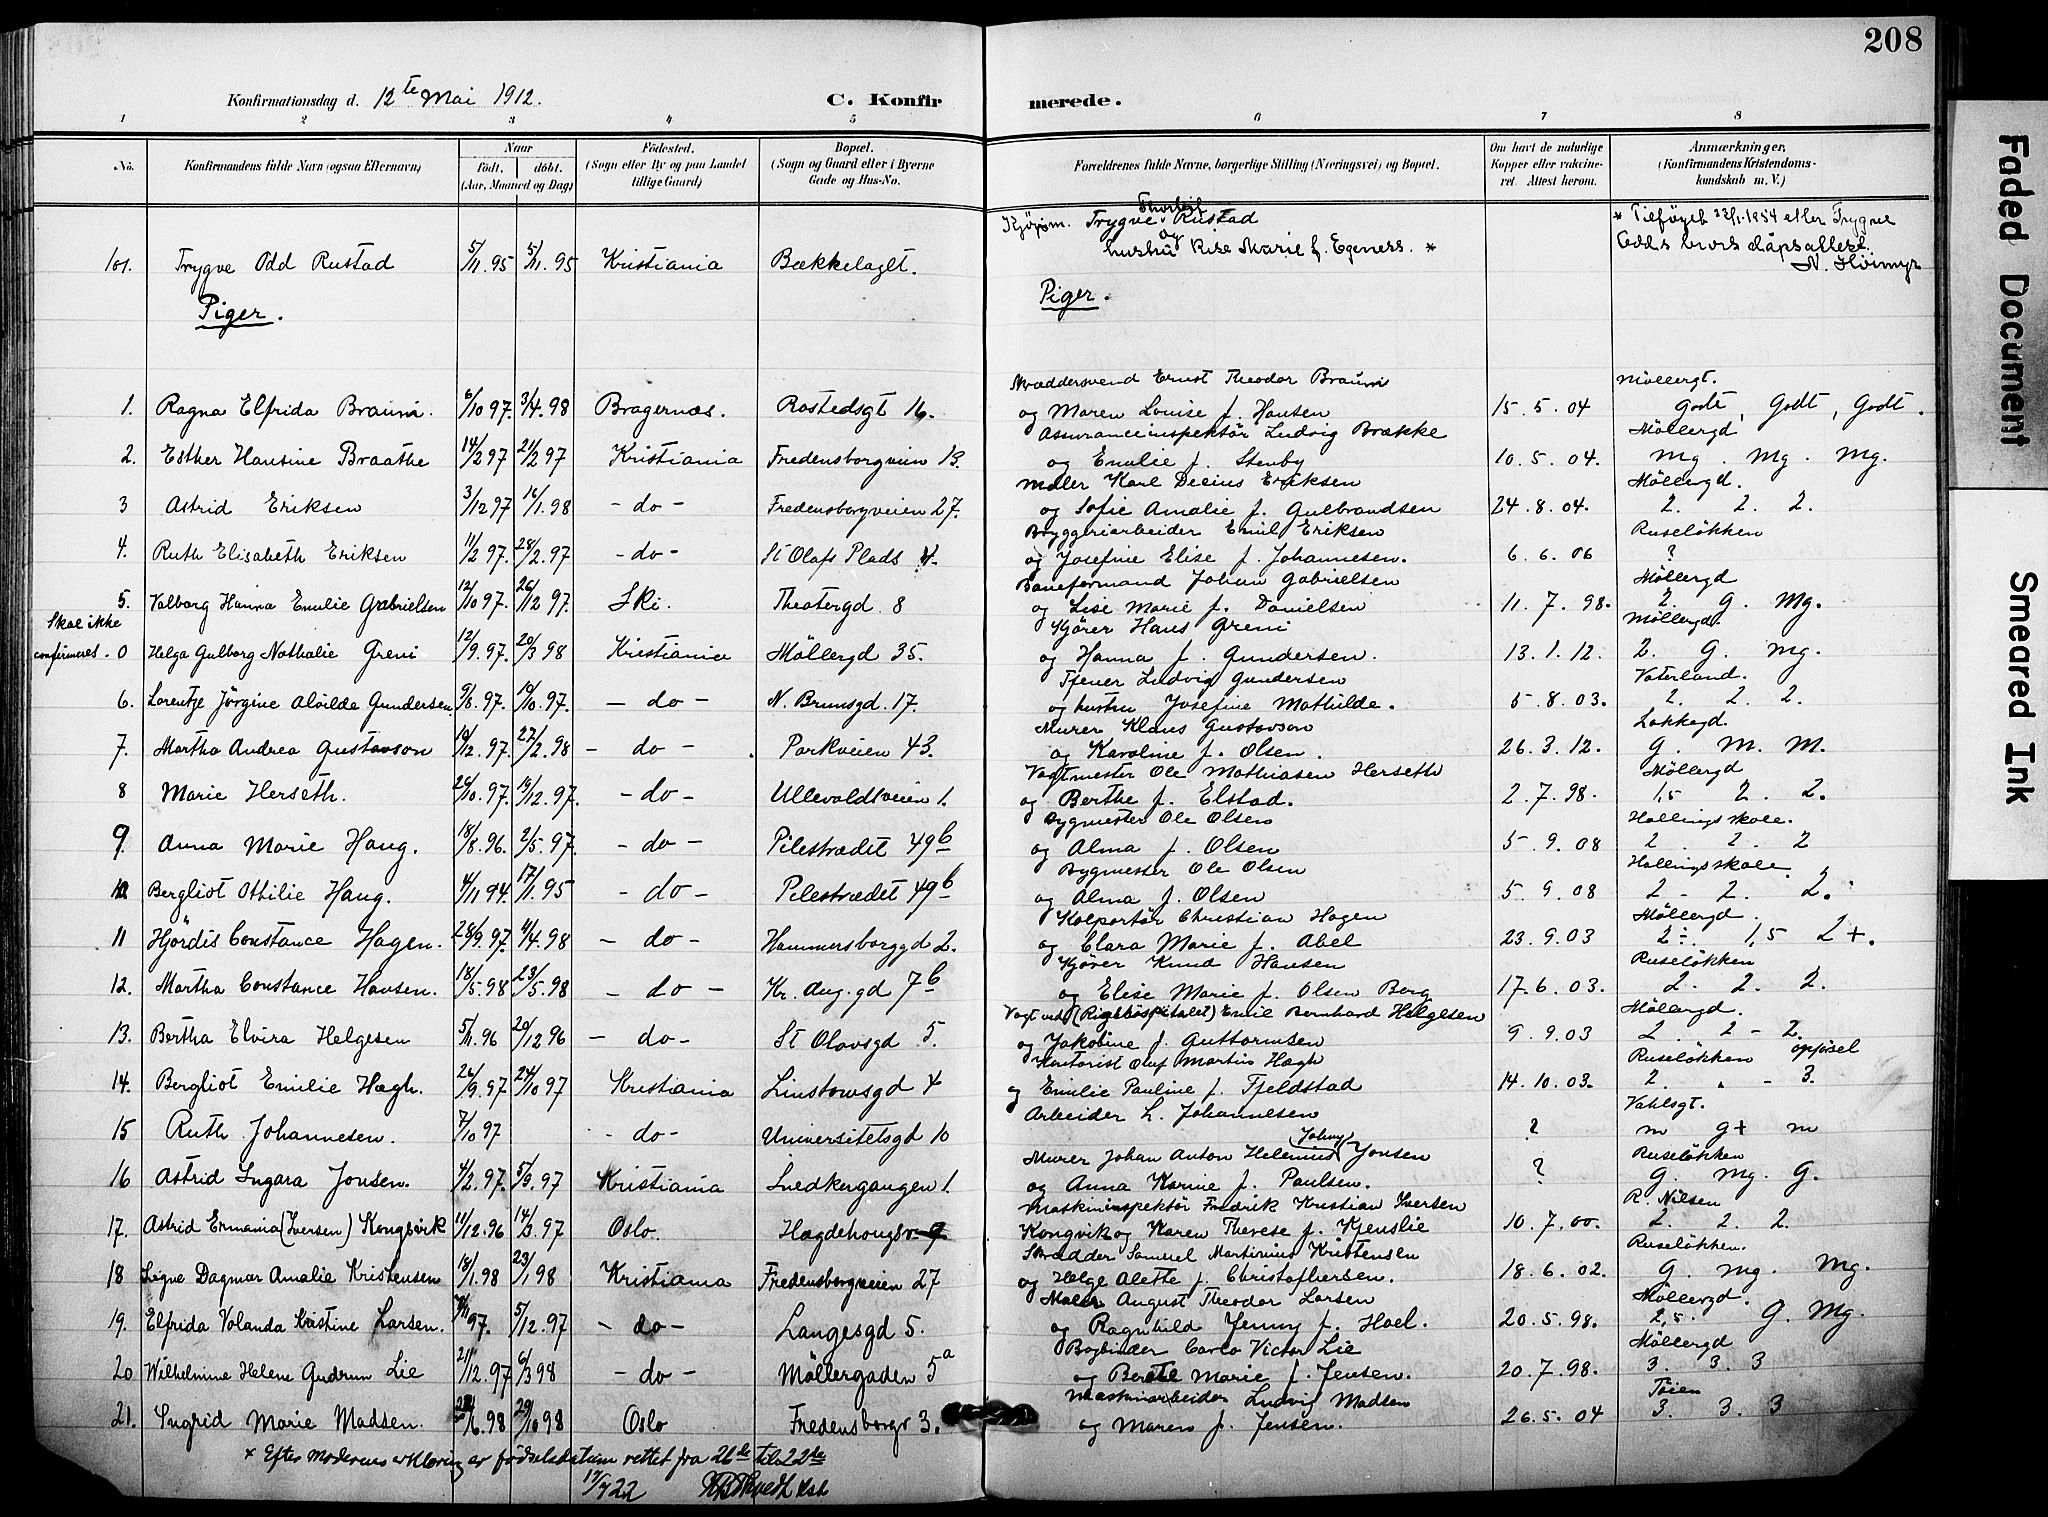 208
Konfirmationsdag d. 12te Mai 1912.
C. Konfirmerede.
1 2 3 4 5 6 7 8
No. Konfirmandens fulde Navn (ogsaa Efternavn) Naar født, døbt. (Aar, Maaned og Dag) Fødested. (Sogn eller By og paa Landet tillige Gaard) Bopæl. (Sogn og Gaard eller i Byerne Gade og Hus-No. Forældrenes fulde Navne, borgerlige Stilling (Næringsvei) og Bopæl. Om havt de naturlige Kopper eller vaccineret Attest herom. Anmærkninger, (Konfirmandens Kristendomskundskab m. V.)
101. Trygve Odd Rustad 5/11 95 5/11 95 Kristiania Bækkelaget. Trygve Rustad og hustru Marie f. Egeness. *
* Tilføyet 22/1-1954 etter Trygve Odds dåpsattest.
Piger. Piger.
1. Ragna Elfrida Braum. 6/10 97. 3/4. 98 Bragernæs. Rostedsgt 16. Skræddersvend Ernst Theodor Braum og Maren Louise f. Hansen 15. 5. 04 Møllergt. Godt, Godt, Godt.
2. Esther Hansine Braathe 14/2 97 21/2 97 Kristiania Fredensborgveien 13. Assuranceinspektør Ludvig Brække og Emilie f. Stenby 10. 5. 04. Møllergd Mg. Mg. Mg.
3 Astrid Eriksen 3/12 97 16/1. 98 - do - Fredensborgveien 27. Maler Karl Eriksen og Sofie Amalie f. Gulbrandsen 24. 8. 04. Møllergd. 2. 2. 2.
4. Ruth Elisabeth Eriksen 11/2 97. 28/2. 97 - do - St Olafs Plads 4. Bryggeriarbeider Emil Eriksen og Josefine Elise f. Johannesen. 6. 6. 06 Ruseløkken ?
5. Valborg Hanna Emilie Gabrielsen 12/10 97. 26/12 97. Ski. Theatergd. 8 Baneformand Johan Gabrielsen og Lise Marie f. Danielsen 11. 7. 98. Møllergd 2. G. Mg.
Skal ikke confirmeres. 0 Helga Gulborg Nathalie Greni 12/9. 97. 20/3 98 Kristiania Møllergd 35. Kjører Hans Greni og Hanna f. Gundersen. 13. 1. 12. Møllergd. 2. G. Mg.
6. Lorentze Jørgine Alvilde Gundersen 9/8. 97. 10/10. 97. - do - N. Brunsgd. 17. Tjener Ludvig Gundersen og hustru Josefine Mathilde. 5. 8. 03. Vaterland. 2. 2. 2.
7. Martha Andrea Gustavson 19/12. 97. 27/2. 98 - do - Parkveien 43. Murer Klaus Gustavson og Karoline f. Olsen. 26. 3. 12. Løkkegd. G. M. M.
8 Marie Herseth. 26/10. 97. 19/12. 97. - do - Ullevoldsveien 1. Vagtmester Ole Mathiasen Herseth og Berthe f. Elstad. 2. 7. 98. Møllergd 1,5 2. 2.
9. Anna Marie Haug. 18/8. 96. 2/5. 97. - do - Pilestrædet 49b Bygmester Ole Olsen og Alma f. Olsen 5. 9. 08 Hallings skole. 2. 2. 2
10 Bergliot Othilie Haug. 4/11 94. 17/11. 95 - do - Pilestrædet 49b Bygmester Ole Olsen og Alma f. Olsen 5. 9. 08 Hallingsskole 2 - 2. 2.
11 Hjørdis Constance Hagen. 28/9. 97. 11/4. 98 - do - Hammersborggd 2. Kolportør Christian Hagen og Clara Marie f. Abel 23. 9. 03 Møllergd. 2÷. 1,5 2+.
12. Martha Constance Hansen. 18/5. 98 23/5. 98 - do - Kr. Aug. gd 7b Kjører Knud Hansen og Elise Marie f. Olsen Berg 17. 6. 03. Ruseløkken 2. 2. 2.
13. Bertha Elvira Helgesen 5/11. 96 20/12 96 - do - St Olavsgd 5. Vagt ved (Rigshospitalet) Emil Bernhard Helgesen og Jakobine f. Guttormsen 9. 9. 03 Møllergd. 2. 2 - 2.
14. Bergliot Emilie Høgh. 26/9. 97 24/10 97 Kristiania Linstowsgd 4 Kontorist Oluf Martin Høgh og Emilie Pauline f. Fjeldstad 14. 10. 03. Ruseløkken 2. - 3.
15 Ruth Johannesen. 7/10 97 - do - Universitetsgd 10 Arbeider L. Johannesen ? Vahlsgt. m g+ m
16 Astrid Ingara Jonsen. 4/2. 97. 5/9. 97 Kristiania Snedkergangen 1. Murer Johan Anton Helenius (Johny) Jonsen og Anna Karine f. Paulsen. ? Ruseløkken G. Mg. G.
17. Astrid Ermania (Iversen) Kongsvik 11/12. 96 14/3. 97 Oslo. Hægdehougsv. 9. Maskininspektør Fredrik Kristian Iversen Kongvik og Karen Therese f. Kjenslie 10. 7. 00. R. Nilsen 2. 2. 2.
18 Signe Dagmar Amalie Kristensen 18/1. 98 23/1 98 Kristiania Fredensborgveien 27 Skrædder Samuel Martinius Kristensen og Helge Alette f. Christophersen. 18. 6. 02. Ruseløkken. G. Mg. Mg.
19. Elfrida Volanda Kristine Larsen. 7/11 97. 5/12. 97 - do - Langesgd 5. Maler August Theodor Larsen og Ragnhild Jenny f. Hoel. 20. 5. 98. Møllergd. 2,5. G. Mg.
20 Wilhelmine Helene Gudrun Lie 21/12. 97 6/3 98 - do - Møllergaden 5a Bogbinder Carlo Victor Lie og Berthe Marie f. Jensen. 20. 7. 98. Møllergd 3. 3. 3
21. Ingrid Marie Madsen. 22/6. 98 29/10 98 Oslo Fredensborgv 3. Maskinarbeider Ludvig Madsen og Maren f. Jensen. 26. 5. 04 Tøien 3. 3. 3
* Efter Moderens erklæring er fødselsdatum rettet fra 26de til 22de
17/7 22
Faded Document
Smeared Ink